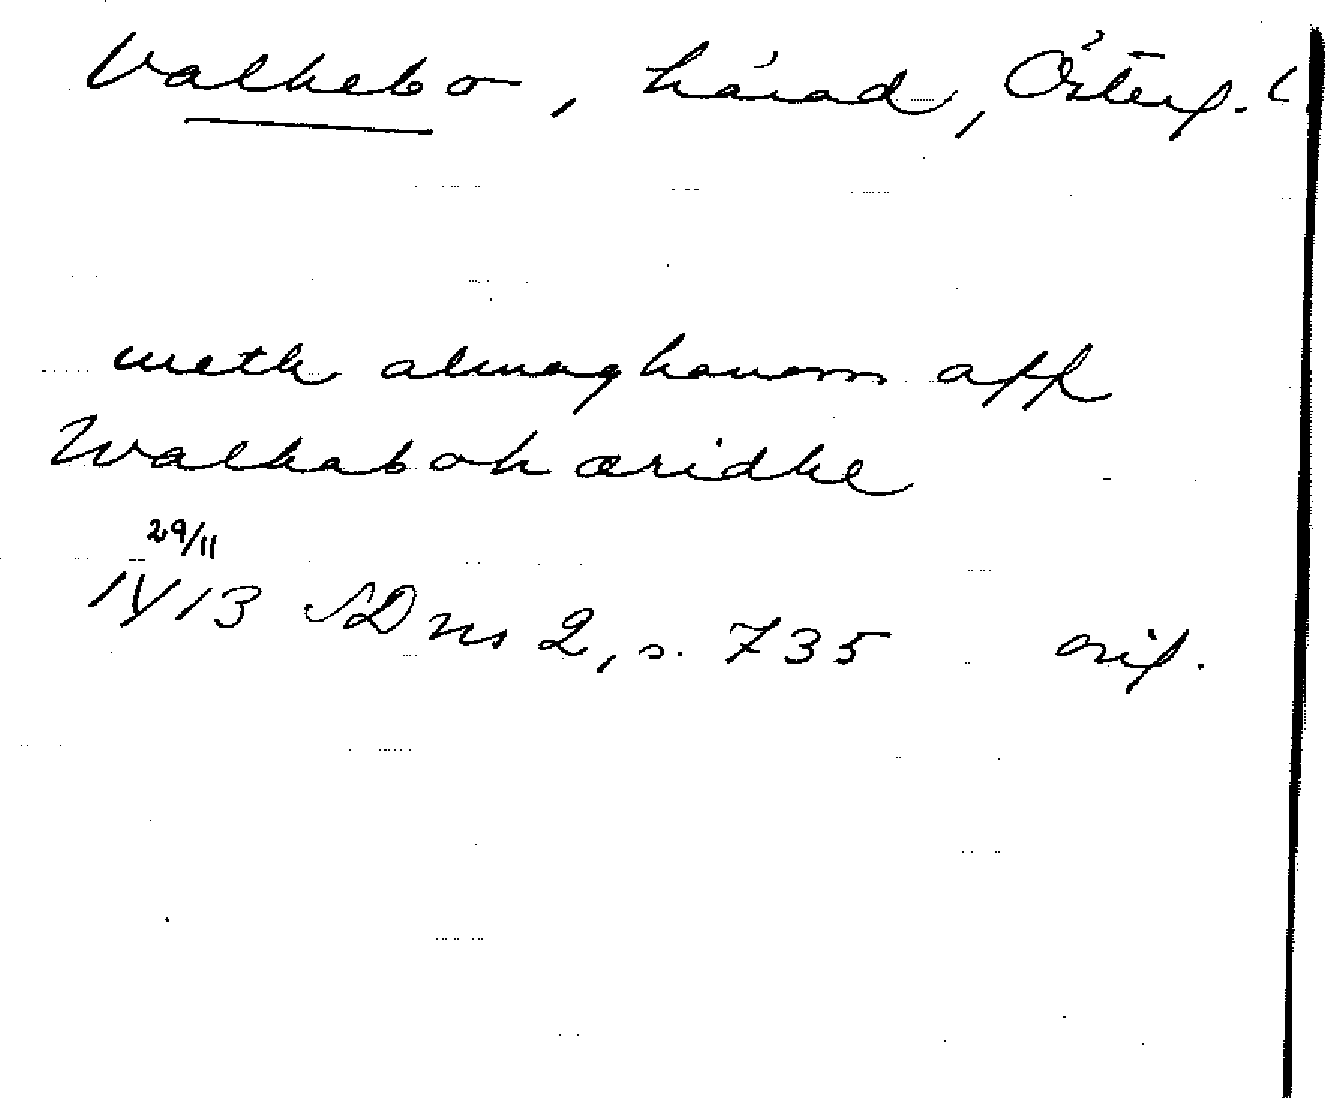 Valkebo, härad, Österg. l
meth almoghanom aff
Walkaboh æridhe
29/11
1413 SD ns 2, s. 735 orig.